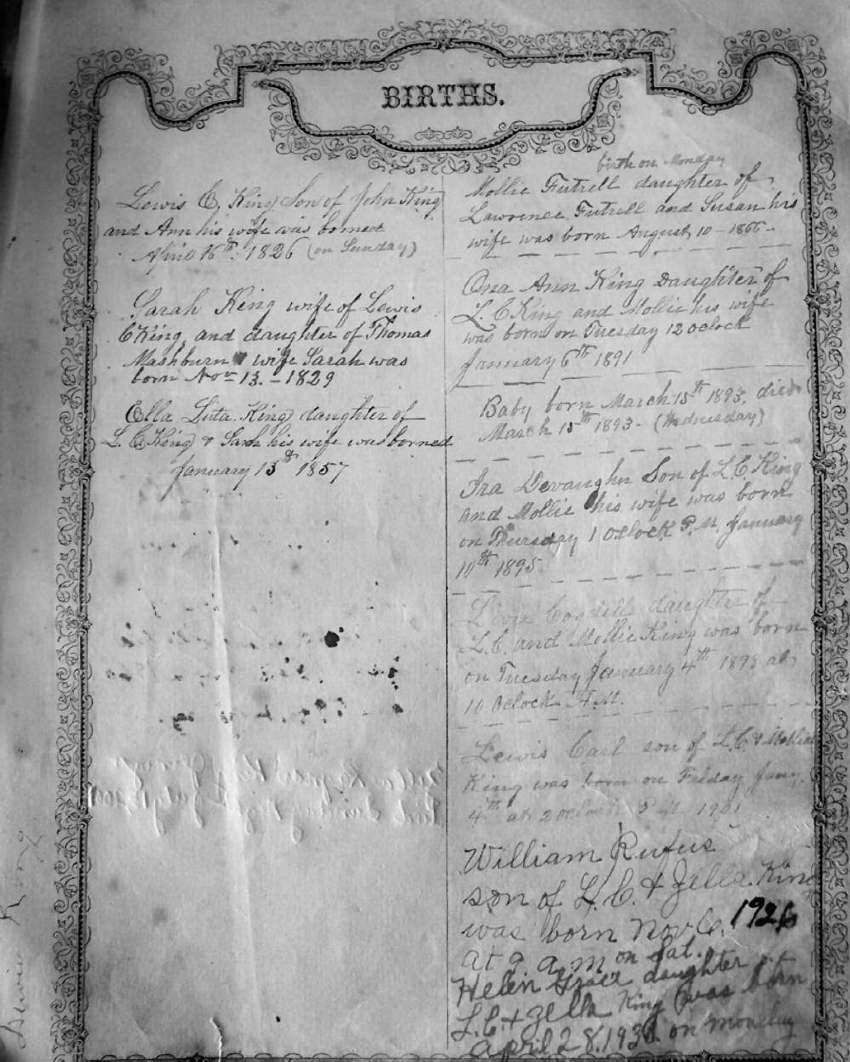 BIRTHS.
Lewis C, King Son of John King
and Ann his wife was borned
April 16th. 1826 (on Sunday)
Sarah King wife of Lewis
C King, and daughter of Thomas
Mashburn & wife Sarah was
born Nov 13. - 1829
Ella Luta King daughter of
L. C King & Sarah his wife was borned
January 13th 1857
birth on Monday
Mollie Futrell daughter of
Lawrence Futrell and Susan his
wife was born August 10 - 1866 -
Ona Ann King Daughter of
L. C King and Mollie his wife
was born on Tuesday 12 oclock
January 6th 1891
Baby born March 15th 1893, died
March 15th 1893 - (Wednesday)
Ira Devaughn Son of L. C King
and Mollie his wife was born
on Thursday 1 Oclock P.M. January
10th 1895.
daughter of
L.C. and Mollie King was born
on Tuesday January 4th at
Oclock
Lewis Carl son of L.C. & Mollie
King was born on Friday Jany.
4th at 2 oclock 1901
William Rufus
son of L. C. & Zella King
was born Nov 6, 1926
at 9 a.m. on Sat.
Helen Grace daughter of
L.C. & Zella King was born
April 28, on monday
King